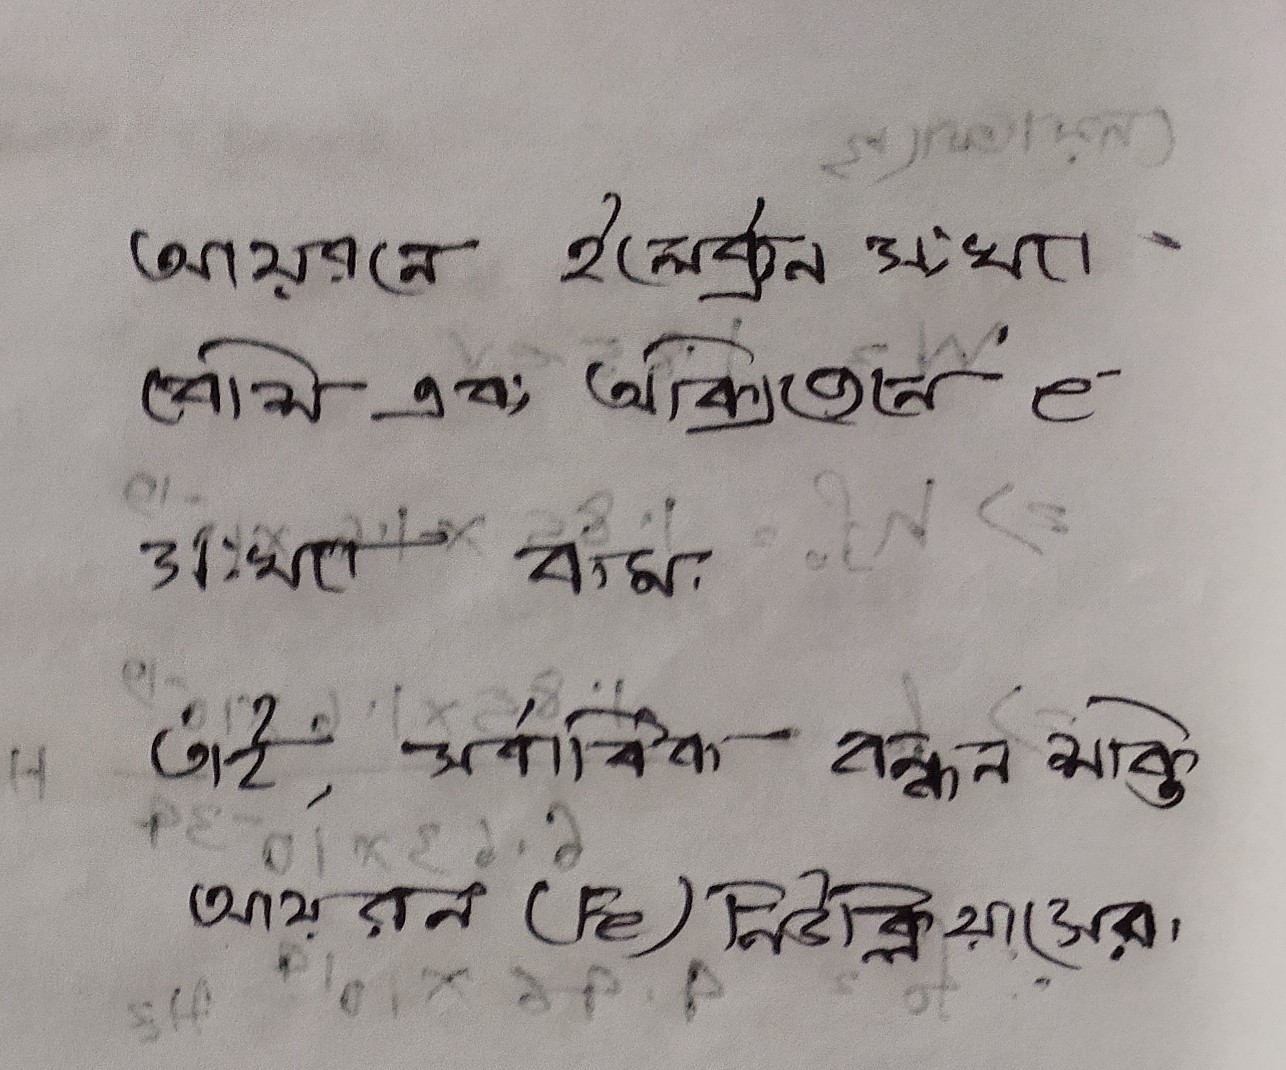 আয়রনে ইলেকট্রন সংখ্যা
বেশি এবং অক্সিজেনে e⁻
সংখ্যা কম।
তাই, সর্বাধিক বন্ধন শক্তি
আয়রন (Fe) নিউক্লিয়াসের।